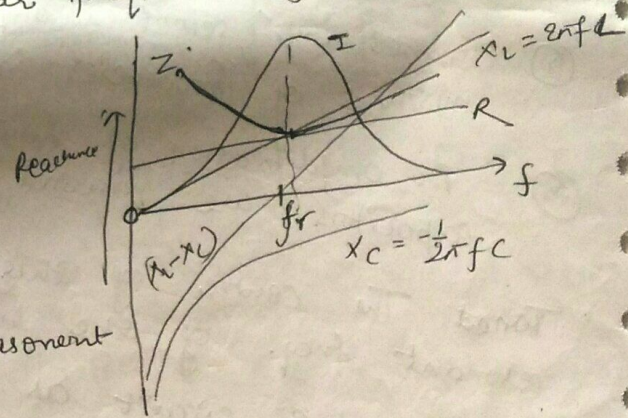 I
Z
X_L = 2πfL
R
Reactance
f
fr
(X_L-X_C)
X_C = -1/2πfC
esonent